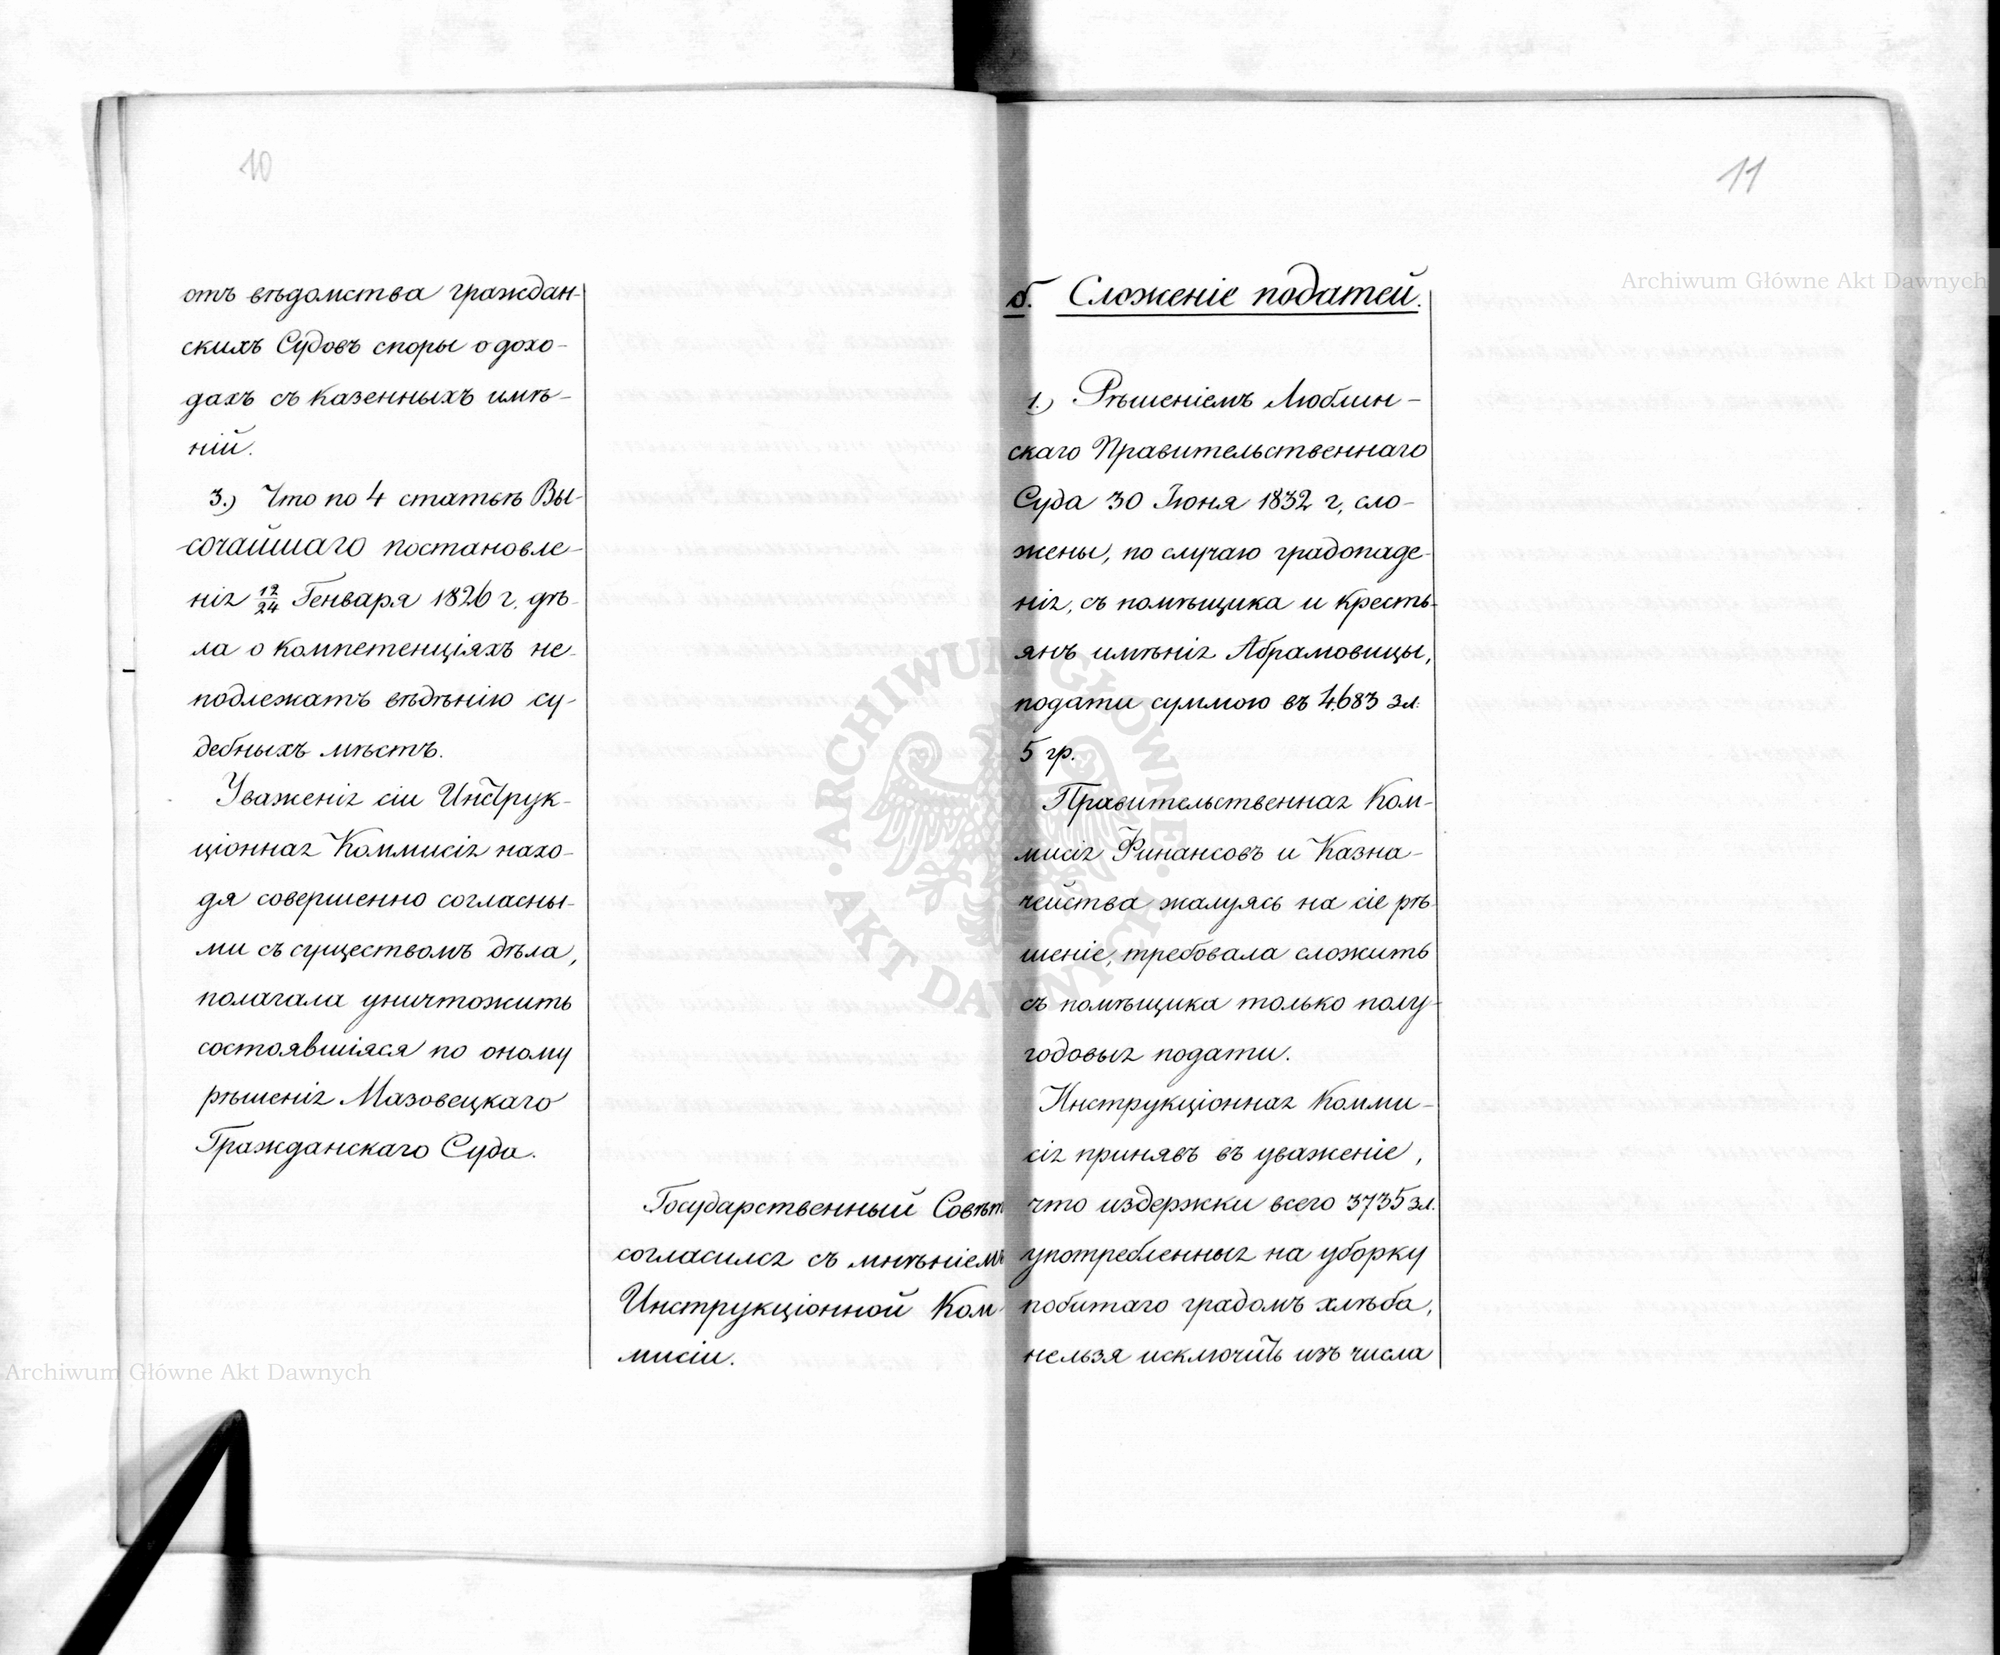 10
отъ вѣдомства граждан-
скихъ Судовъ споры о дохо-
дахъ съ казенныхъ имѣ-
ній.
3.) Что по 4 статьѣ Вы-
сочайшаго постановле-
нія 12/24 Генваря 1826 г. дѣ-
ла о компетенціяхъ не-
подлежатъ вѣдѣнію су-
дебныхъ мѣстъ.
Уваженія сіи Инструк-
ціонная Коммисія нахо-
дя совершенно согласны-
ми съ существомъ дѣла,
полагала уничтожить
состоявшіяся по оному
рѣшенія Мазовецкаго
Гражданскаго Суда.
Государственный Совѣтъ
согласился съ мнѣніемъ
Инструкціонной Ком-
мисіи.
11
б. Сложеніе податей.
1.) Рѣшеніемъ Люблин-
скаго Правительственнаго
Суда 30 Іюня 1832 г, сло-
жены, по случаю градопаде-
нія, съ помѣщика и кресть-
янъ имѣнія Абрамовицы,
подати суммою въ 4683 зл.
5 гр.
Правительственная Ком-
мисія Финансовъ и Казна-
чейства жалуясь на сіе рѣ-
шеніе, требовала сложить
съ помѣщика только полу-
годовыя подати.
Инструкціонная Комми-
сія принявъ въ уваженіе,
что издержки всего 3735 зл.
употребленныя на уборку
побитаго градомъ хлѣба,
нельзя исключить изъ числа
Archiwum Główne Akt Dawnych
Archiwum Główne Akt Dawnych
ARCHIWUM GŁÓWNE AKT DAWNYCH